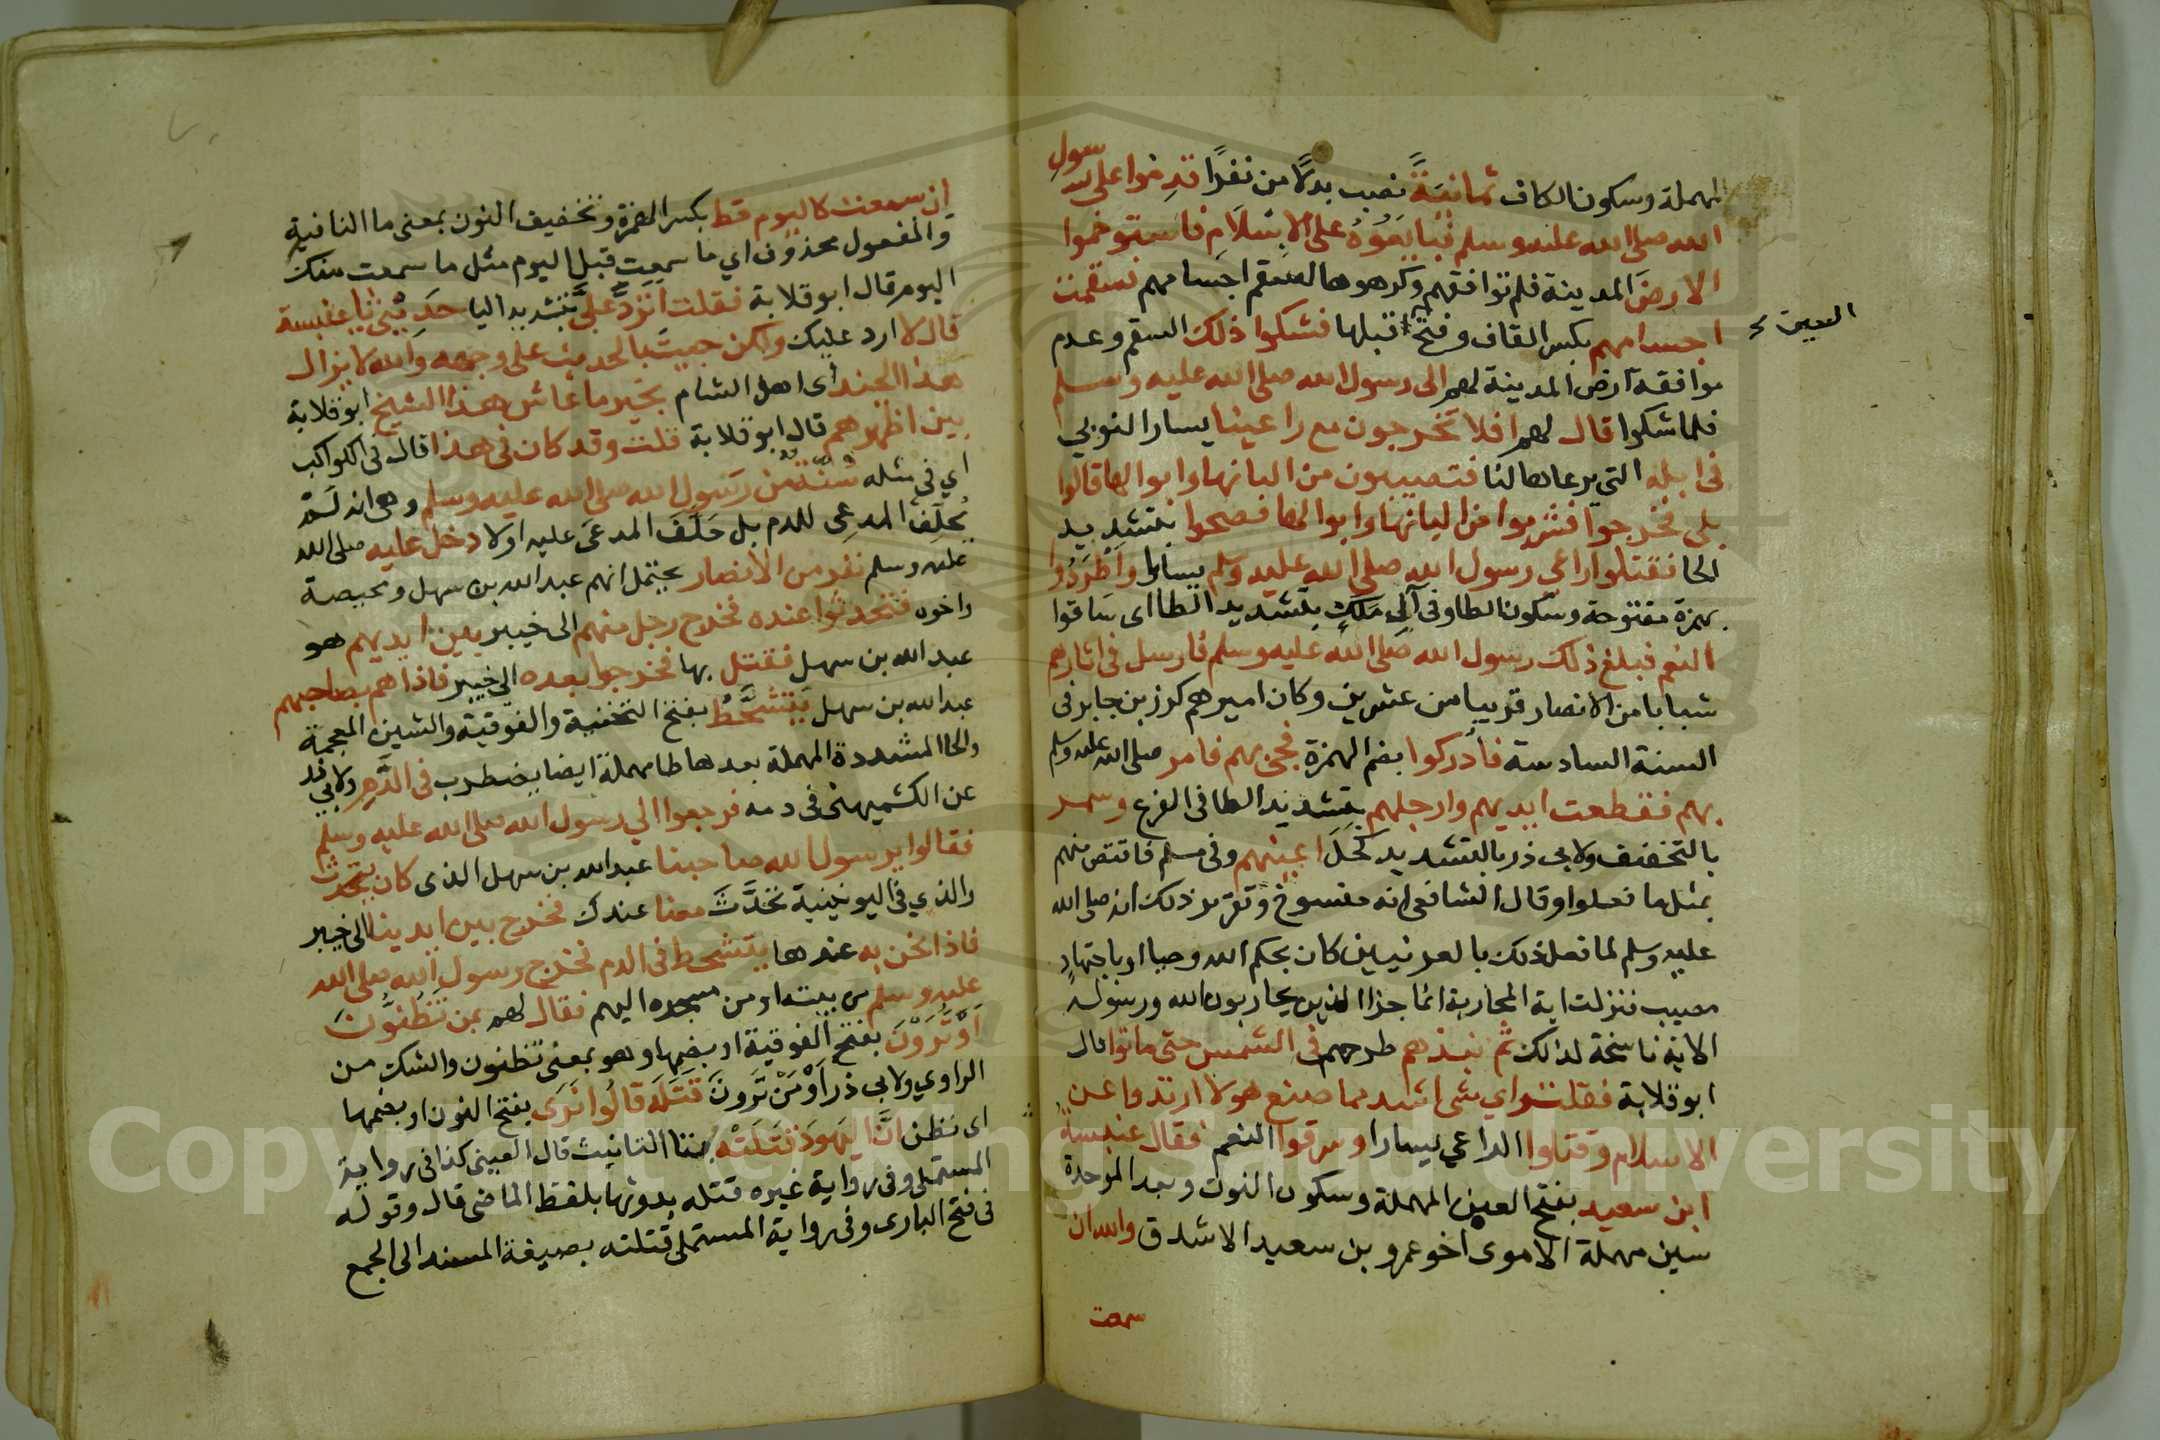 المهملة وسكون الكاف ثمانيةً نصب بدلاً من نفرًا قدموا على رسول
الله صلى الله عليه وسلم فبايعوه على الاسلام فاستوخموا
الارض المدينة فلم توافقهم وكرهوها لسقم اجسامهم فسقمت
اجسامهم بكسر القاف وفتح قبلها فشكوا ذلك السقم وعدم
العين
موافقة ارض المدينة لهم الى رسول الله صلى الله عليه وسلم
فلما شكوا قال لهم افلا تخرجون مع راعينا يسار النوبي
في ابله التي يرعاها لنا فتصيبون من البانها وابوالها قالوا
بلى فخرجوا فشربوا من البانها وابوالها فصحوا بتشديد
الحا فقتلوا راعي رسول الله صلى الله عليه وسلم يسارا واطردوا
بهمزة مفتوحة وسكون الطا وفي آل ملك بتشديد الطا اى ساقوا
النعم فبلغ ذلك رسول الله صلى الله عليه وسلم فارسل في اثارهم
شبابا من الانصار قريبا من عشرين وكان اميرهم كرز بن جابر في
السنة السادسة فأدركوا بضم الهمزة فجئ بهم فامر صلى الله عليه وسلم
بهم فقطعت ايديهم وارجلهم بتشديد الطا في الفرع وسمر
بالتخفيف ولابي ذر بالتشديد كحل اعينهم وفي مسلم فاقتص منهم
بمثل ما فعلوا وقال الشافعي انه منسوخ وتقرير ذلك انه صلى الله
عليه وسلم لما فعل ذلك بالعرنيين كان بحكم الله وحيا او باجتهاد
مصيب فنزلت اية المحاربة انما جزا الذين يحاربون الله ورسوله
الاية ناسخة لذلك ثم نبذهم طرحهم في الشمس حتى ماتوا قال
ابو قلابة فقلت واي شى اشد مما صنع هولا ارتدوا عن
الاسلام وقتلوا الراعي يسارا وسرقوا النعم فقال عنبسة
ابن سعيد بفتح العين المهملة وسكون النون وبعد الموحدة
سين مهملة الاموى اخو عمرو بن سعيد الاشدق والله ان
سمعت
ان سمعت كاليوم قط بكسر الهمزة وتخفيف النون بمعنى ما النافية
والمفعول محذوف اي ما سمعت قبل اليوم مثل ما سمعت منك
اليوم قال ابو قلابة فقلت اتردّ عليّ بتشديد اليا حديثى يا عنبسة
قال لا ارد عليك ولكن جيت بالحديث على وجهه والله لا يزال
هذا الجند اى اهل الشام بخير ما عاش هذا الشيخ ابو قلابة
بين اظهرهم قال ابو قلابة قلت وقد كان في هذا قال في الكواكب
اي في مثله سنّة من رسول الله صلى الله عليه وسلم وهى انه لم
يحلف المدعي للدم بل حلف المدعى عليه اولا دخل عليه صلى الله
عليه وسلم نفر من الانصار يحتمل انهم عبد الله بن سهل ومحيصة
واخوه فتحدثوا عنده فخرج رجل منهم الى خيبر بين ايديهم هو
عبد الله بن سهل فقتل بها فخرجوا بعده الى خيبر فاذا هم بصاحبهم
عبد الله بن سهل يتشحّط بفتح التحتية والفوقية والشين المعجمة
والحا المشددة المهملة بعدها طا مهملة ايضا يضطرب في الدم ولابي ذر
عن الكشميهنى في دمه فرجعوا الي رسول الله صلى الله عليه وسلم
فقالوا يرسول الله صاحبنا عبد الله بن سهل الذى كان يتحدث
والذي في اليونينية تحدّث معنا عندك فخرج بين ايدينا الى خيبر
فاذا نحن به عندها يتشحط في الدم فخرج رسول الله صلى الله
عليه وسلم من بيته او من مسجده اليهم فقال لهم بمن تظنون
او ترون بفتح الفوقية او بضمها وهو بمعنى تظنون والشك من
الراوي ولابي ذر او من ترون قتله قالوا نرى بفتح النون او بضمها
اى نظن انّ اليهود قتلته بتا التانيث قال العينى كذا في رواية
المستملى وفي رواية غيره قتله بدونها بلفظ الماضى قال وقوله
في فتح البارى وفي رواية المستملي قتلته بصيغة المسند الى الجمع
Copyright © King Saud University